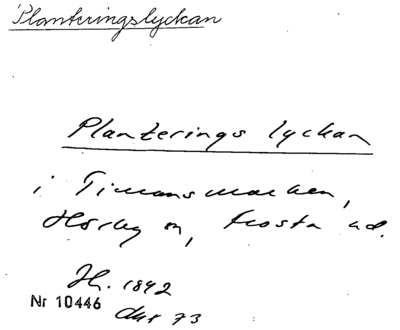 Planteringslyckan
Planterings lyckan
i Timansmarken,
Hörby sn, Frosta hd.
Jh. 1892
Nr 10446
akt 73